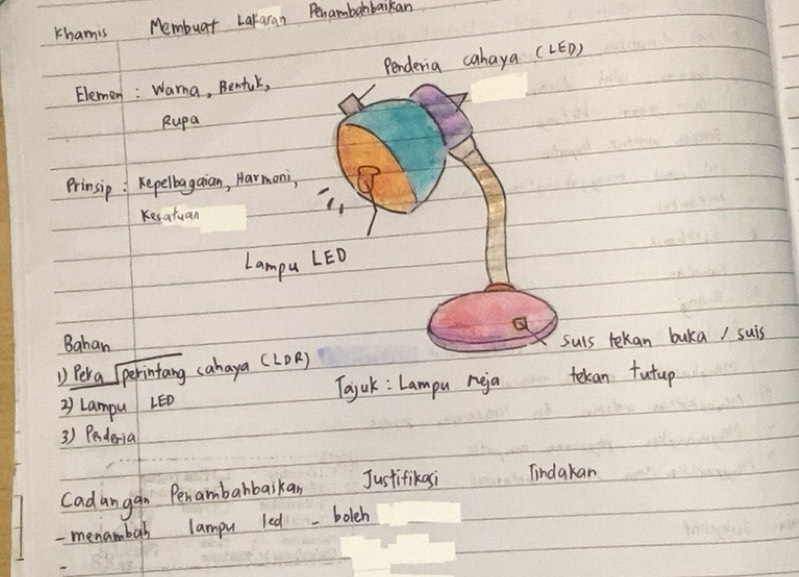 Khamis Membuat Lakaran Penambahbaikan
Penderia cahaya (LED)
Elemen : Warna, Bentuk,
Rupa
Prinsip : Kepelbagaian, Harmoni,
Kesatuan
Lampu LED
Bahan
1) Peka perintang cahaya (LDR)
2) Lampu LED
3) Penderia
suis tekan buka / suis
tekan tutup
Tajuk : Lampu meja
Cadangan Penambahbaikan Justifikasi Tindakan
- menambah lampu led - boleh
-